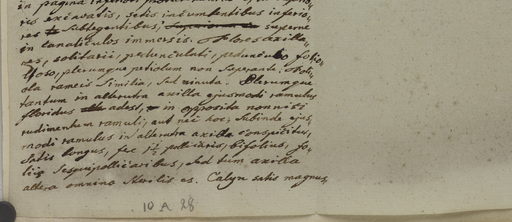 in pagina
ies excavatis, setis incumbentibus inferio-
res subtegentibus; superne
in canaliculos immersis. Flores axilla-
res, solitarii, pedunculati, pedunculo folio-
loso, plerumque petiolum non superante,
ola rameis similia, sed minuta. Plerumque
tantum in alterutra axilla ejusmodi ramulus
floridus adest, in opposita nonnisi
rudimentum ramuli, aut nec hoc; subinde ejus-
modi ramulus in alterutra axilla conspicitur,
satis longus, fere 1½ pollicaris, bifolius, fo-
liis sesquipollicaribus, sed tum axilla
altera omnino sterilis est. Calyx satis magnus,
10 A 28